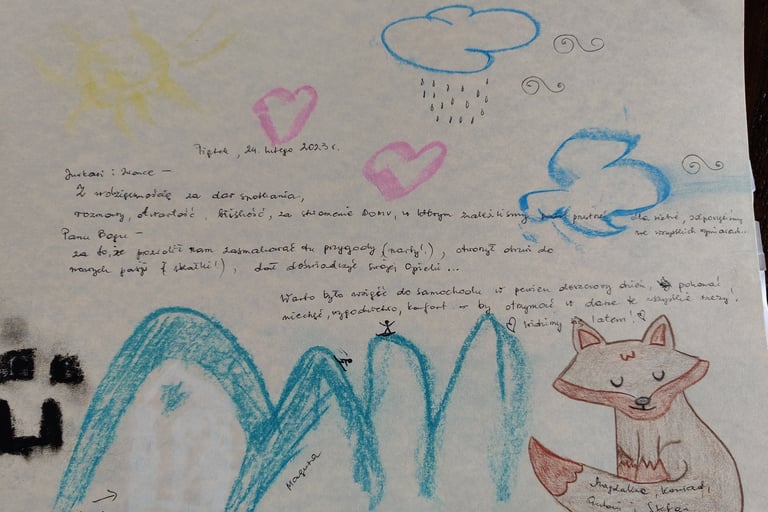 Piątek, 24. lutego 2023 r.
Z wdzięcznością za dar spotkania,
rozmowy, otwartość, bliskość, za stworzenie DOMU, w którym znaleźliśmy przestrzeń dla siebie, odpoczęliśmy
we wszystkich wymiarach...
Panu Bogu –
za to, że pozwolił nam zasmakować tu przygody (narty!), otworzył drzwi do
nowych pasji (skałki!), dał doświadczyć swojej Opieki...
Warto było wsiąść do samochodu w pewien deszczowy dzień, pokonać
niechęć, wygodnictwo, komfort by otrzymać w dane te wszystkie rzeczy!
Widzimy się latem!
Magura
Magdalena, Konrad,
Stefan